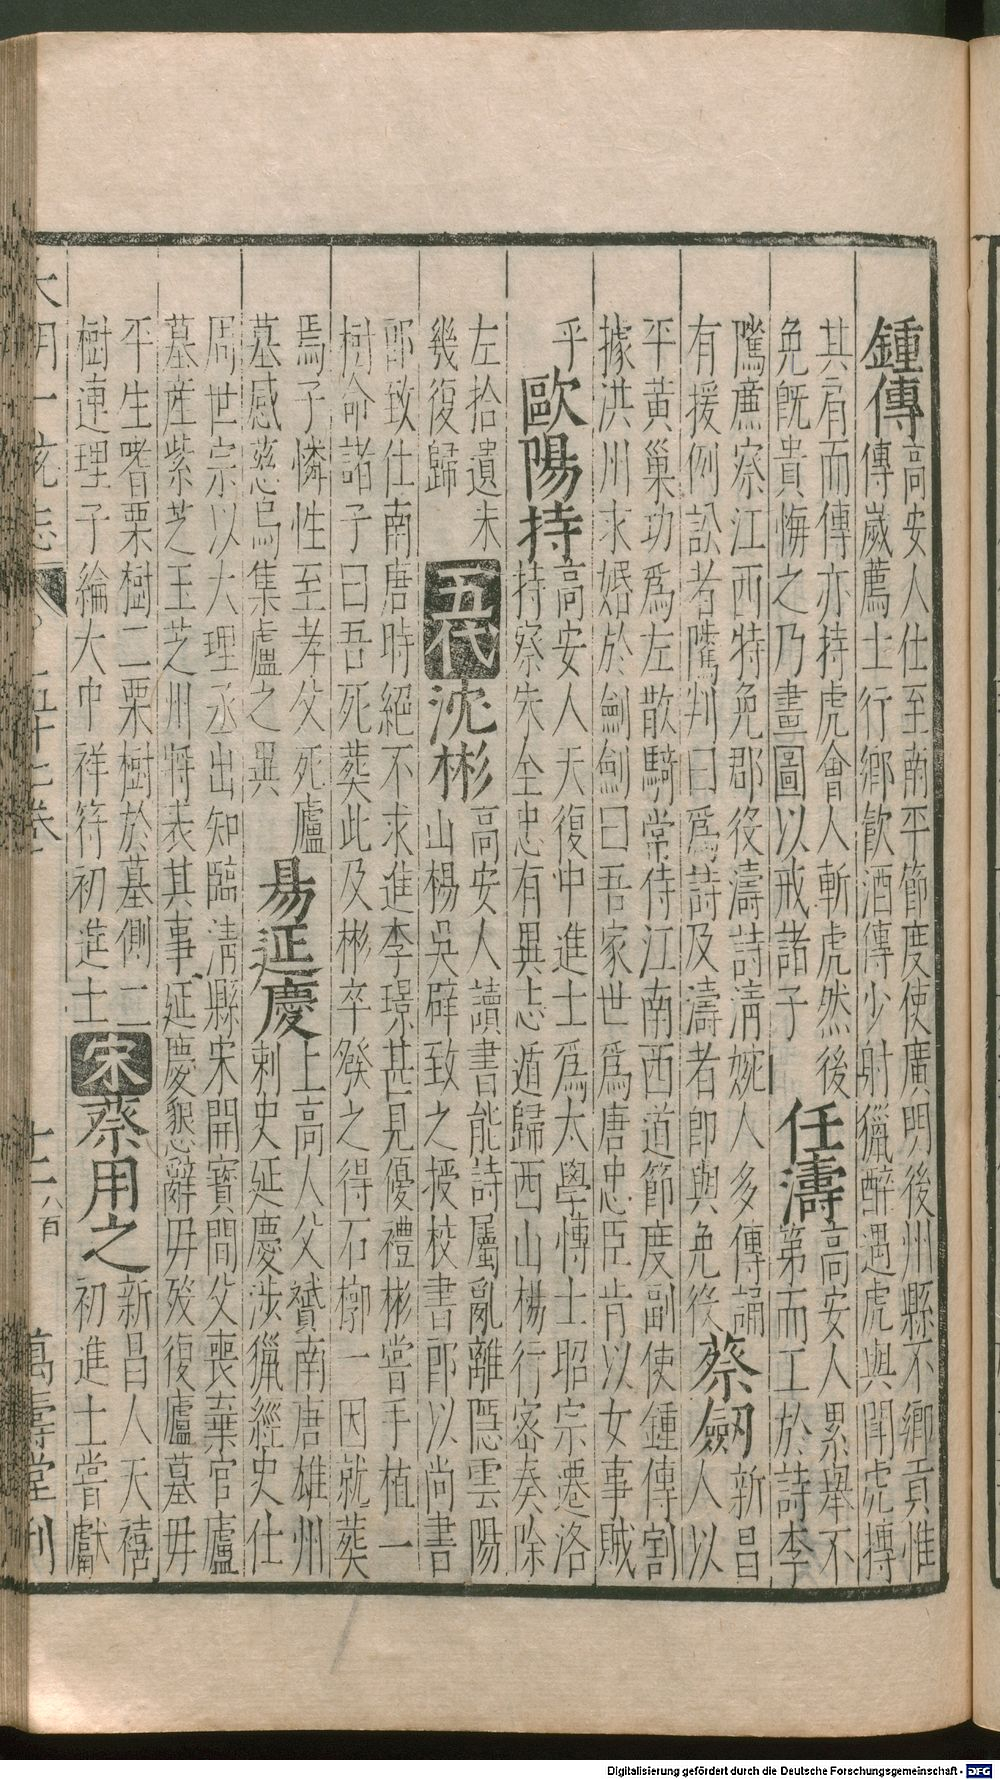 鍾傳
高安人仕至南平節度使廣明後州縣不鄉貢惟
傳歲薦士行鄉飲酒傳少射獵醉遇虎與鬥虎搏
其肩而傳亦持虎會人斬虎然後
免既貴悔之乃畫圖以戒諸子
任濤
高安人累舉不
第而工於詩李
隲廉察江西特免郡役濤詩清婉人多傳誦
有援例訟者隲判曰爲詩及濤者卽與免役
蔡劒
新昌
人以
平黃巢功爲左散騎常侍江南西道節度副使鍾傳割
據洪州求婚於劒劒曰吾家世爲唐忠臣肯以女事賊
乎
歐陽持
高安人天復中進士爲太學博士昭宗遷洛
持察朱全忠有異志遁歸西山楊行密奏除
左拾遺未
幾復歸
五代
沈彬
高安人讀書能詩屬亂離隱雲陽
山楊吳辟致之授校書郎以尚書
郎致仕南唐時絕不求進李璟甚見優禮彬嘗手植一
樹命諸子曰吾死葬此及彬卒發之得石槨一因就葬
焉子憐性至孝父死廬
墓感慈烏集廬之異
易延慶
上高人父贇南唐雄州
刺史延慶涉獵經史仕
周世宗以大理丞出知臨淸縣宋開寶間父喪棄官廬
墓産紫芝玉芝州將表其事延慶懇辭毋歿復廬墓毋
平生嗜栗樹二栗樹於墓側二
樹連理子綸大中祥符初進士
宋
蔡用之
新昌人天禧
初進士嘗獻
大明一統志 五十七卷 萬壽堂刊
Digitalisierung gefördert durch die Deutsche Forschungsgemeinschaft - DFG